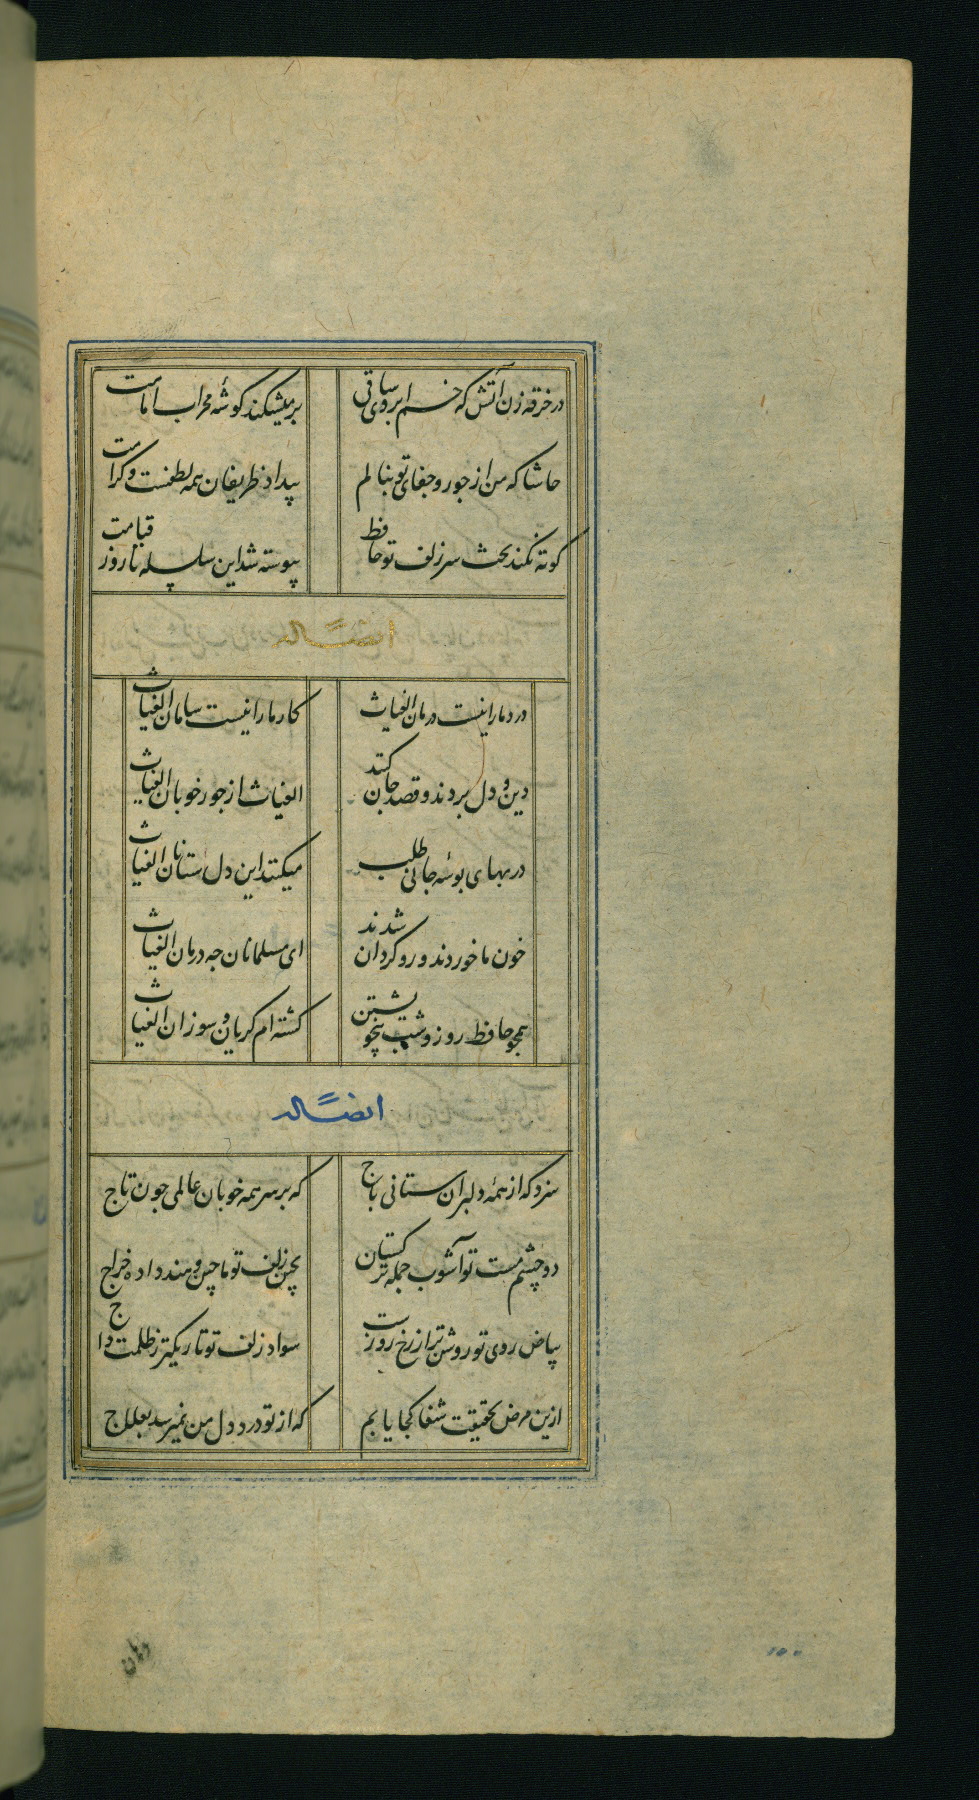 در خرقه زن آتش که خم ابروی ساقی بر میشکند گوشهٔ محراب امامت
حاشا که من از جور و جفای تو بنالم بیداد ظریفان همه لطفست و کرامت
کوته نکند بحث سر زلف تو حافظ پیوسته شد این سلسله تا روز قیامت
ایضاً له
درد ما را نیست درمان الغیاث کار ما را نیست سامان الغیاث
دین و دل بردند و قصد جان کنند الغیاث از جور خوبان الغیاث
در بهای بوسهٔ جانی طلب میکنند این دل ستانان الغیاث
خون ما خوردند و روگردان شدند ای مسلمانان چه درمان الغیاث
همچو حافظ روز و شب بیخویشتن گشته ام گریان و سوزان الغیاث
ایضاً له
سزد که از همهٔ دلبران ستانی باج که بر سر همه خوبان عالمی چون تاج
دو چشم مست تو آشوب جمله ترکستان بچین زلف تو ماچین و هند داده خراج
بیاض روی تو روشن تر از رخ روزست سواد زلف تو تاریکتر ز ظلمت داج
ازین مرض بحقیقت شفا کجا یابم که از تو درد دل من نمیرسد بعلاج
دهان